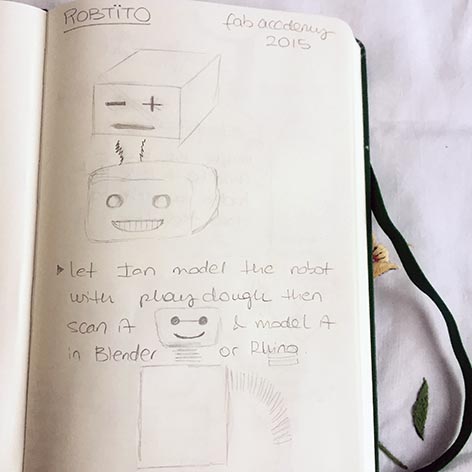 ROBTÏTO
fab academy
2015
let Ian model the robot
with play dough then
scan it & model it
in Blender or Rhino.